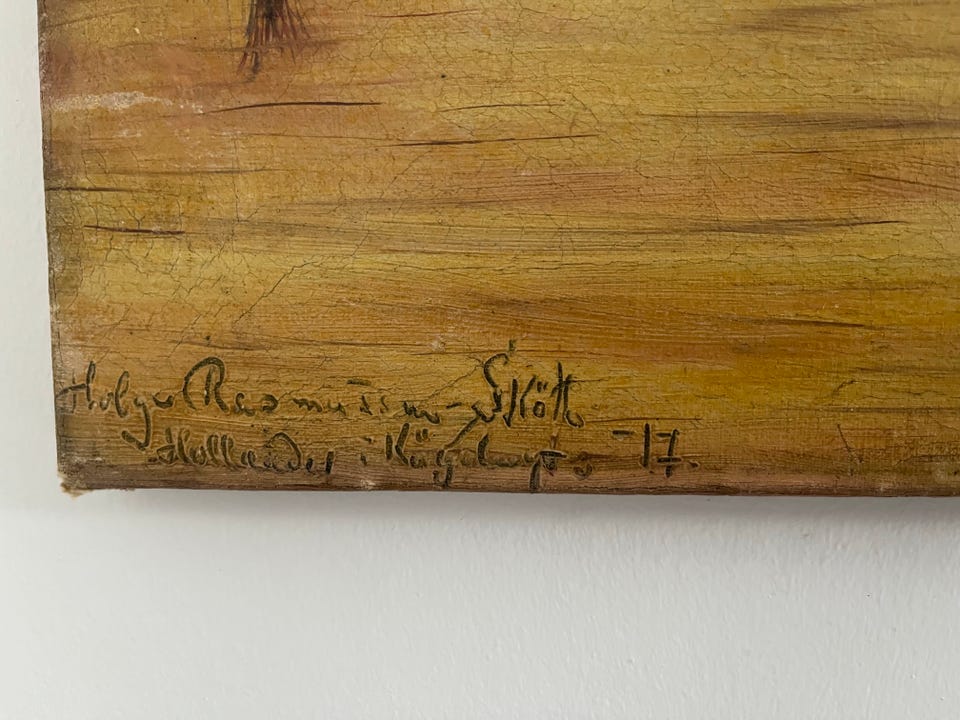 Holger Rasmussen - Skött
Hollænder i -17.